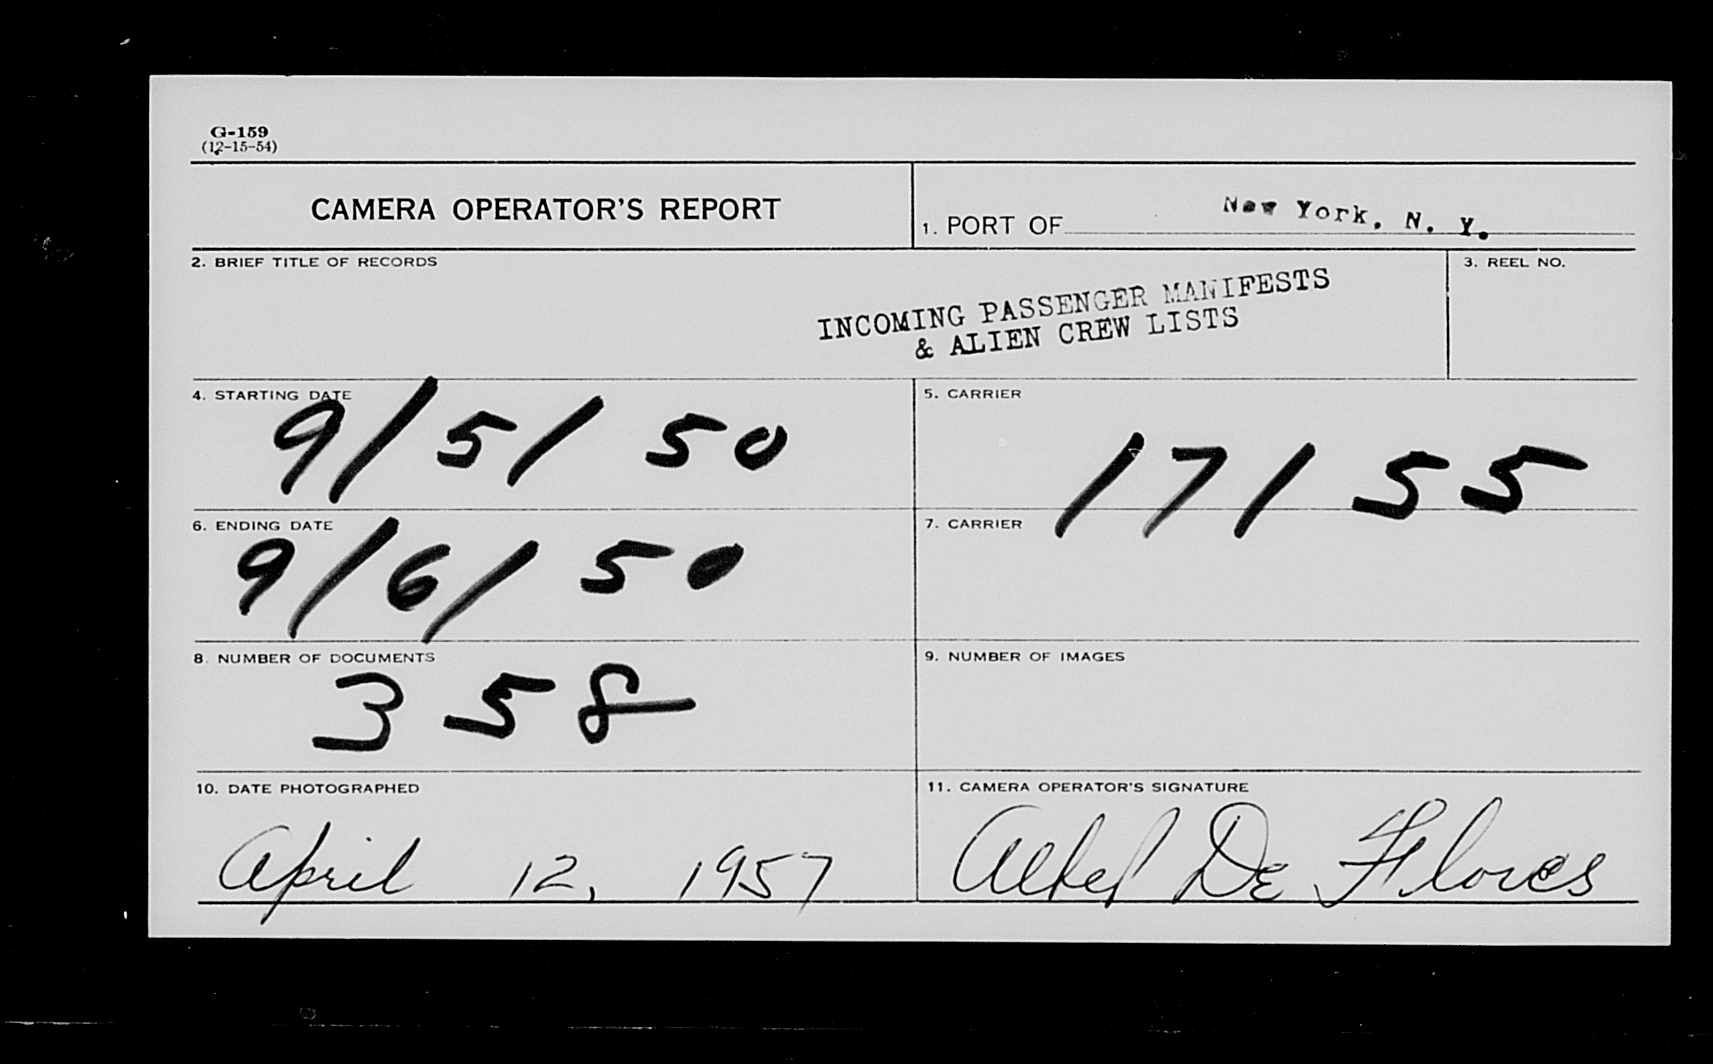 G-159
(12-15-54)
CAMERA OPERATOR'S REPORT
1. PORT OF New York, N. Y.
2. BRIEF TITLE OF RECORDS
INCOMING PASSENGER MANIFESTS
& ALIEN CREW LISTS
3. REEL NO.
4. STARTING DATE
9/5/50
5. CARRIER
17155
6. ENDING DATE
9/6/50
7. CARRIER
8. NUMBER OF DOCUMENTS
358
9. NUMBER OF IMAGES
10. DATE PHOTOGRAPHED
April 12, 1957
11. CAMERA OPERATOR'S SIGNATURE
De Flores